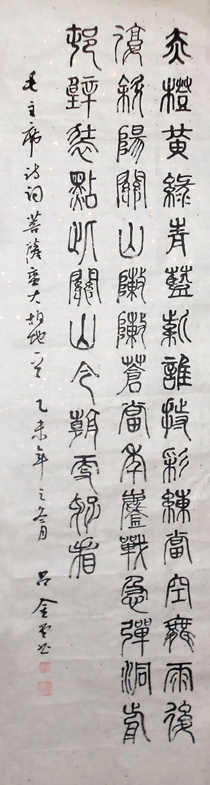 赤橙黃綠青藍紫誰持彩練當空舞雨後
復斜陽關山陣陣蒼當年鏖戰急彈洞前
邨壁裝點此關山今朝更好看
毛主席诗词菩薩蛮大柏地一首 乙未年之冬月 吕金书